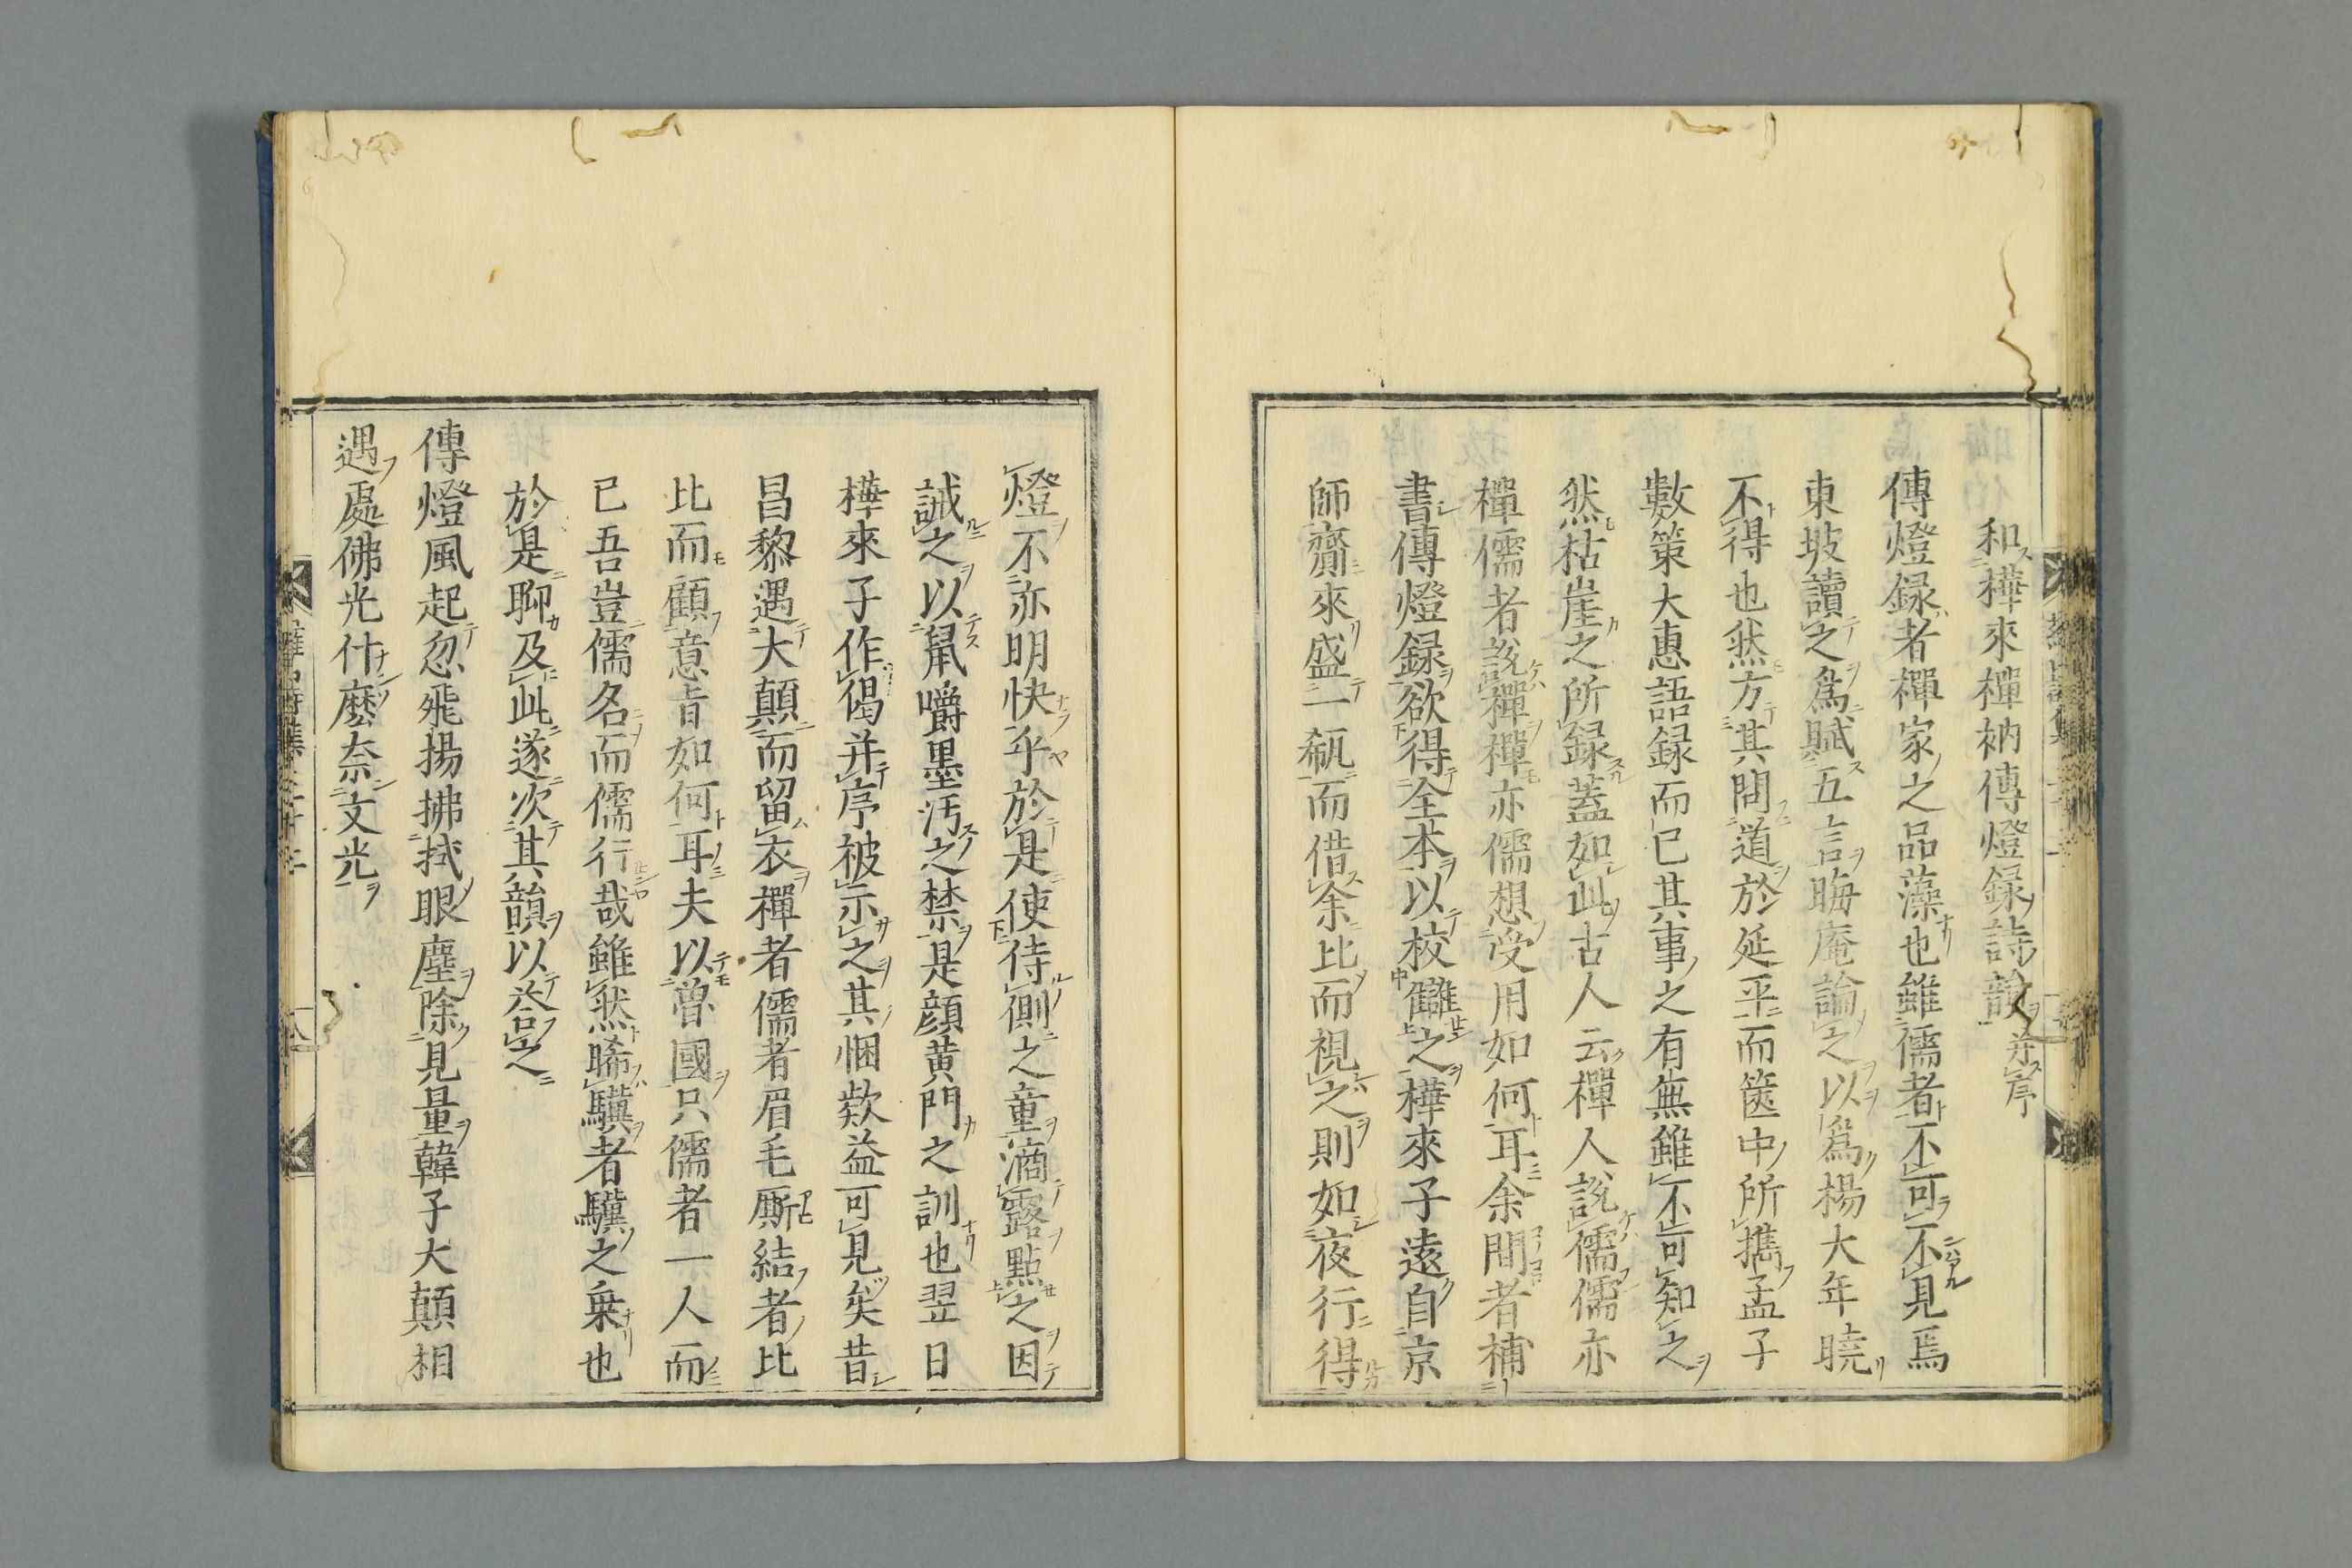 和樺來禪衲傳燈録詩韻并序
傳燈録者禪家之品藻也雖儒者不可不見焉
東坡讀之爲賦五言晦庵論之以爲楊大年曉
不得也然方其問道於延平而篋中所携孟子
數策大惠語録而已其事之有無雖不可知之
然枯崖之所録蓋如此古人云禪人説儒儒亦
禪儒者説禪禪亦儒想受用如何耳余間者補
書傳燈録欲得全本以校讎之樺來子遠自京
師齎來盛一瓻而借余比而視之則如夜行得
燈不亦明快乎於是使侍側之童滴露點之因
誡之以鼠嚼墨汚之禁是顔黄門之訓也翌日
樺來子作偈并序被示之其悃欵益可見矣昔
昌黎遇大顛而留衣禪者儒者眉毛厮結者比
比而顧意旨如何耳夫以魯國只儒者一人而
已吾豈儒名而儒行哉雖然睎驥者驥之乗也
於是聊及此遂次其韻以荅之
傳燈風起忽飛揚拂拭眼塵除見量韓子大顛相
遇處佛光什麼奈文光